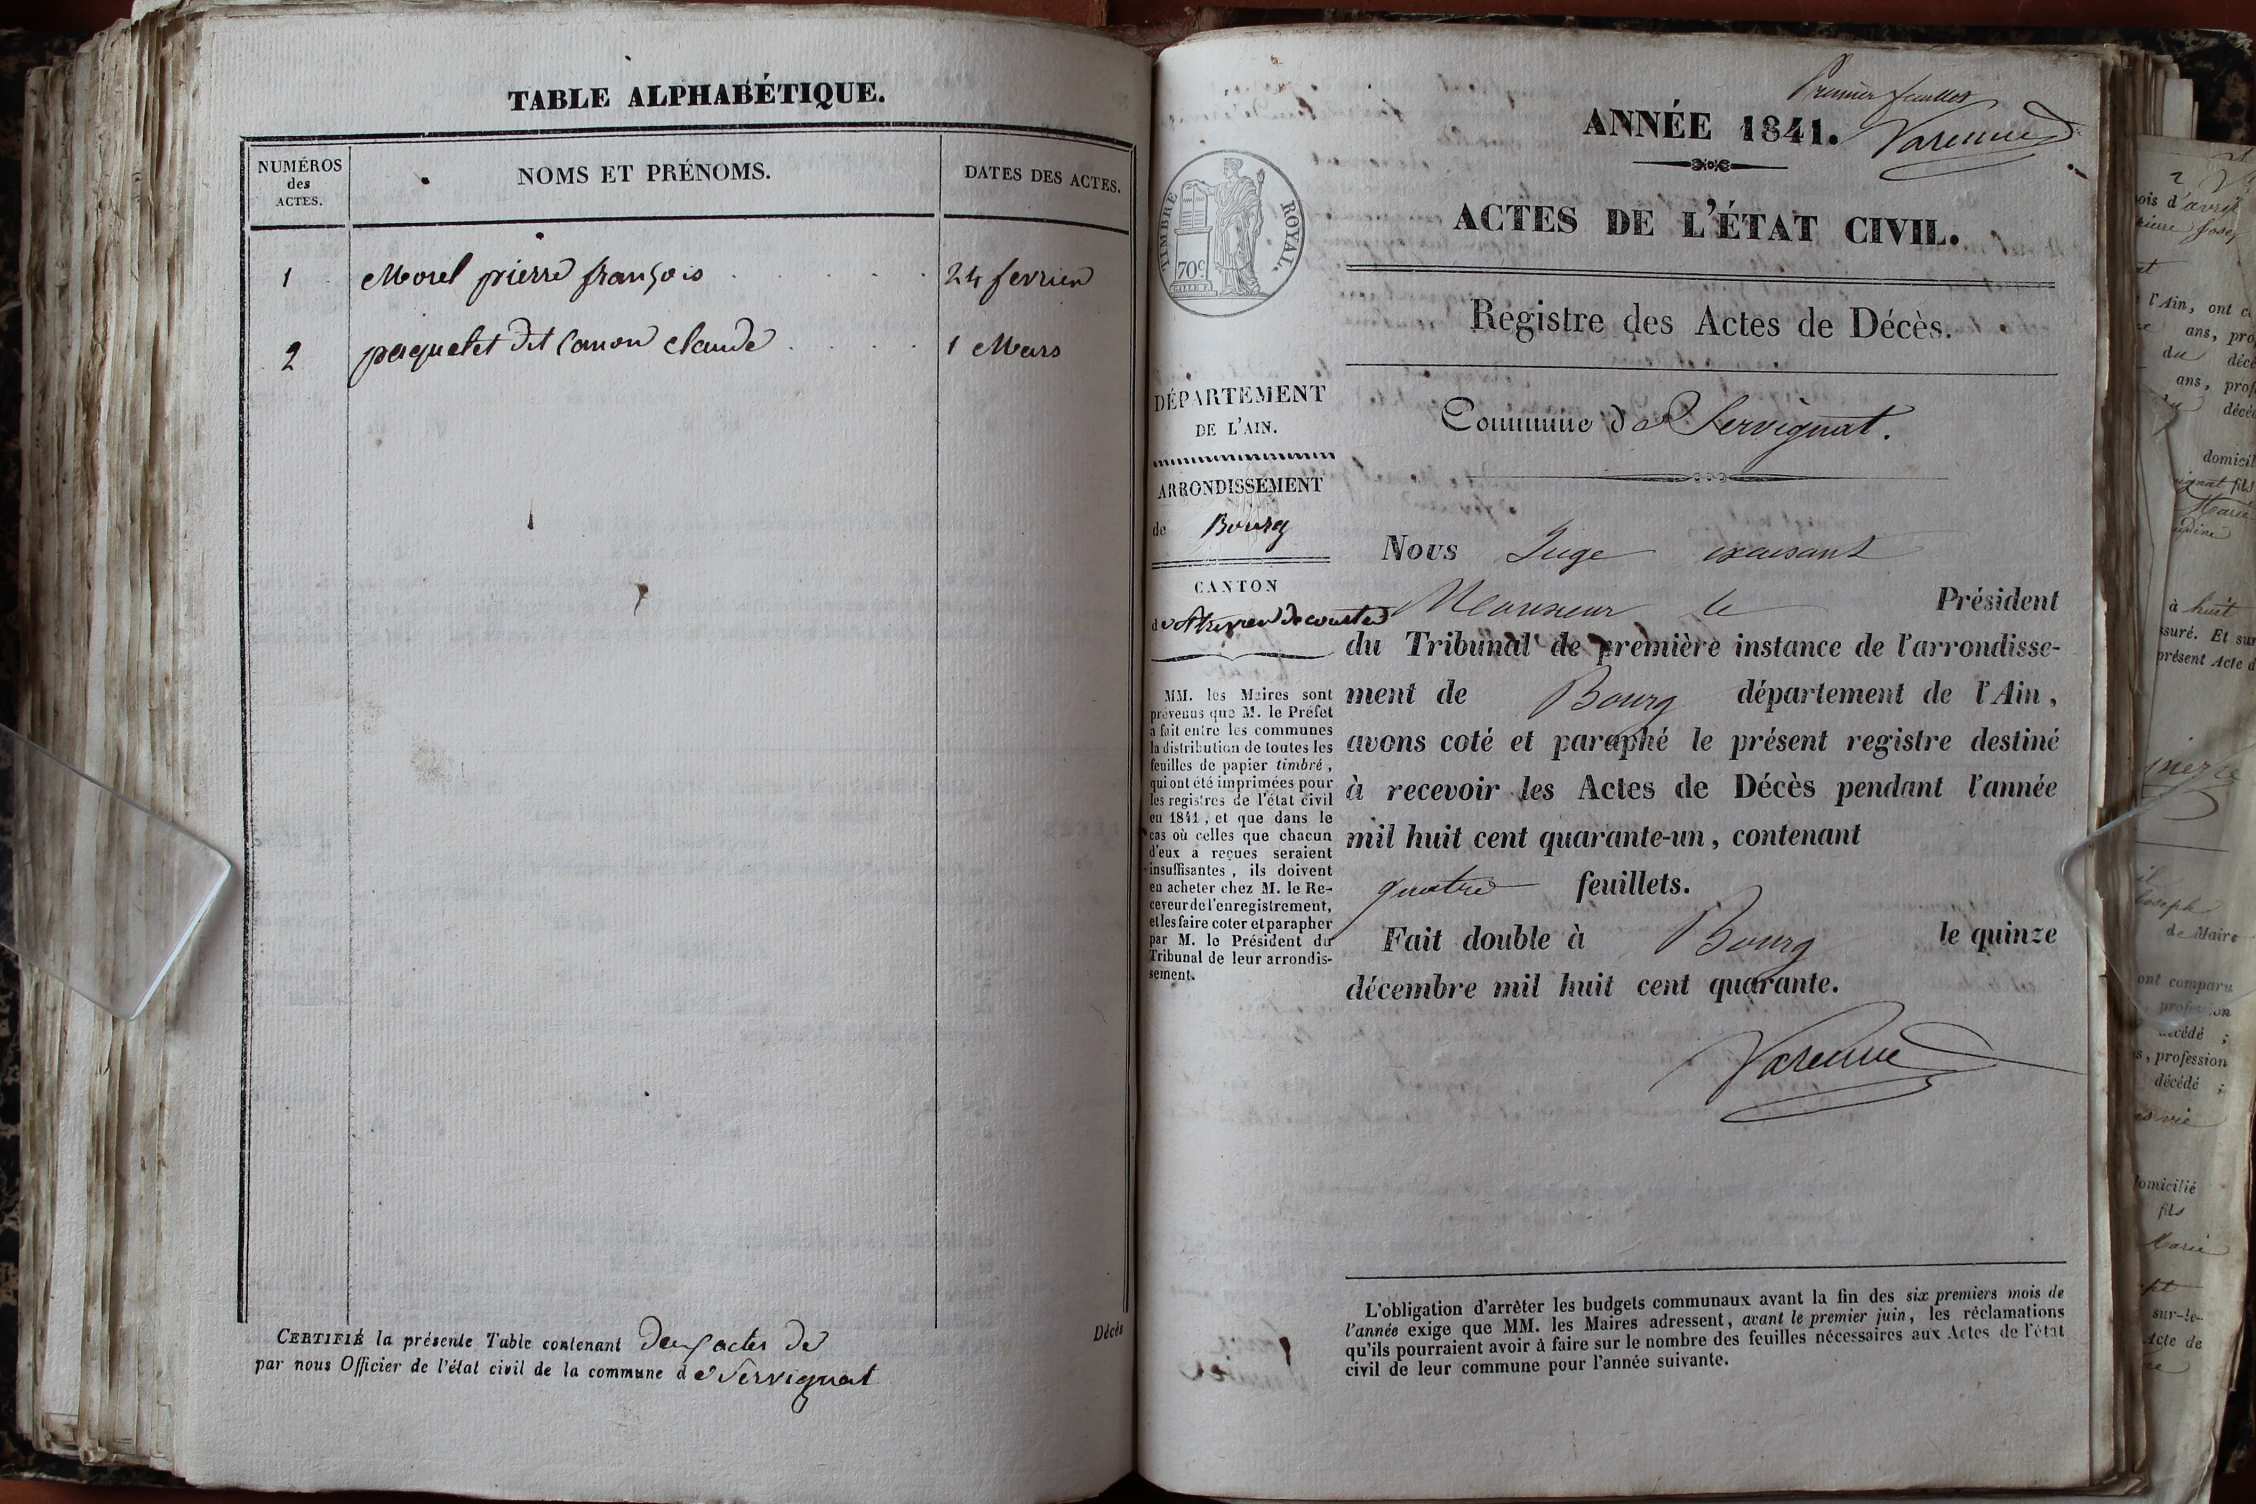 TABLE ALPHABÉTIQUE.
NUMÉROS
des
ACTES.
NOMS ET PRÉNOMS.
DATES DES ACTES.
1 Morel pierre françois . . . . . . 24 fevrier
2 paquelet dit Canon claude . . . . . 1 Mars
CERTIFIÉ la présente Table contenant deux actes de
par nous Officier de l'état civil de la commune de Servignat
Décès
Premier feuillet
Varenne
ANNÉE 1841.
ACTES DE L'ÉTAT CIVIL.
TIMBRE ROYAL.
70c
Registre des Actes de Décès.
Commune de Servignat.
DÉPARTEMENT
DE L'AIN.
ARRONDISSEMENT
de Bourg
CANTON
de
MM. les Maires sont
prévenus que M. le Préfet
a fait entre les communes
la distribution de toutes les
feuilles de papier timbré,
qui ont été imprimées pour
les registres de l'état civil
en 1841, et que dans le
cas où celles que chacun
d'eux a reçues seraient
insuffisantes, ils doivent
en acheter chez M. le Re-
ceveur de l'enregistrement,
et les faire coter et parapher
par M. le Président du
Tribunal de leur arrondis-
sement.
Nous Juge
Monsieur le Président
du Tribunal de première instance de l'arrondisse-
ment de Bourg département de l'Ain,
avons coté et paraphé le présent registre destiné
à recevoir les Actes de Décès pendant l'année
mil huit cent quarante-un, contenant
quatre feuillets.
Fait double à Bourg le quinze
décembre mil huit cent quarante.
Varenne
L'obligation d'arrêter les budgets communaux avant la fin des six premiers mois de
l'année exige que MM. les Maires adressent, avant le premier juin, les réclamations
qu'ils pourraient avoir à faire sur le nombre des feuilles nécessaires aux Actes de l'état
civil de leur commune pour l'année suivante.
2
ois d'avril
l'Ain, ont
ans,
du
ans,
à huit
ssuré. Et sur
présent Acte d
Joseph
de Maire
ont comparu
profession
décédé ;
s, profession
décédé ;
domicilié
fils
Marie
sur-le-
Acte de